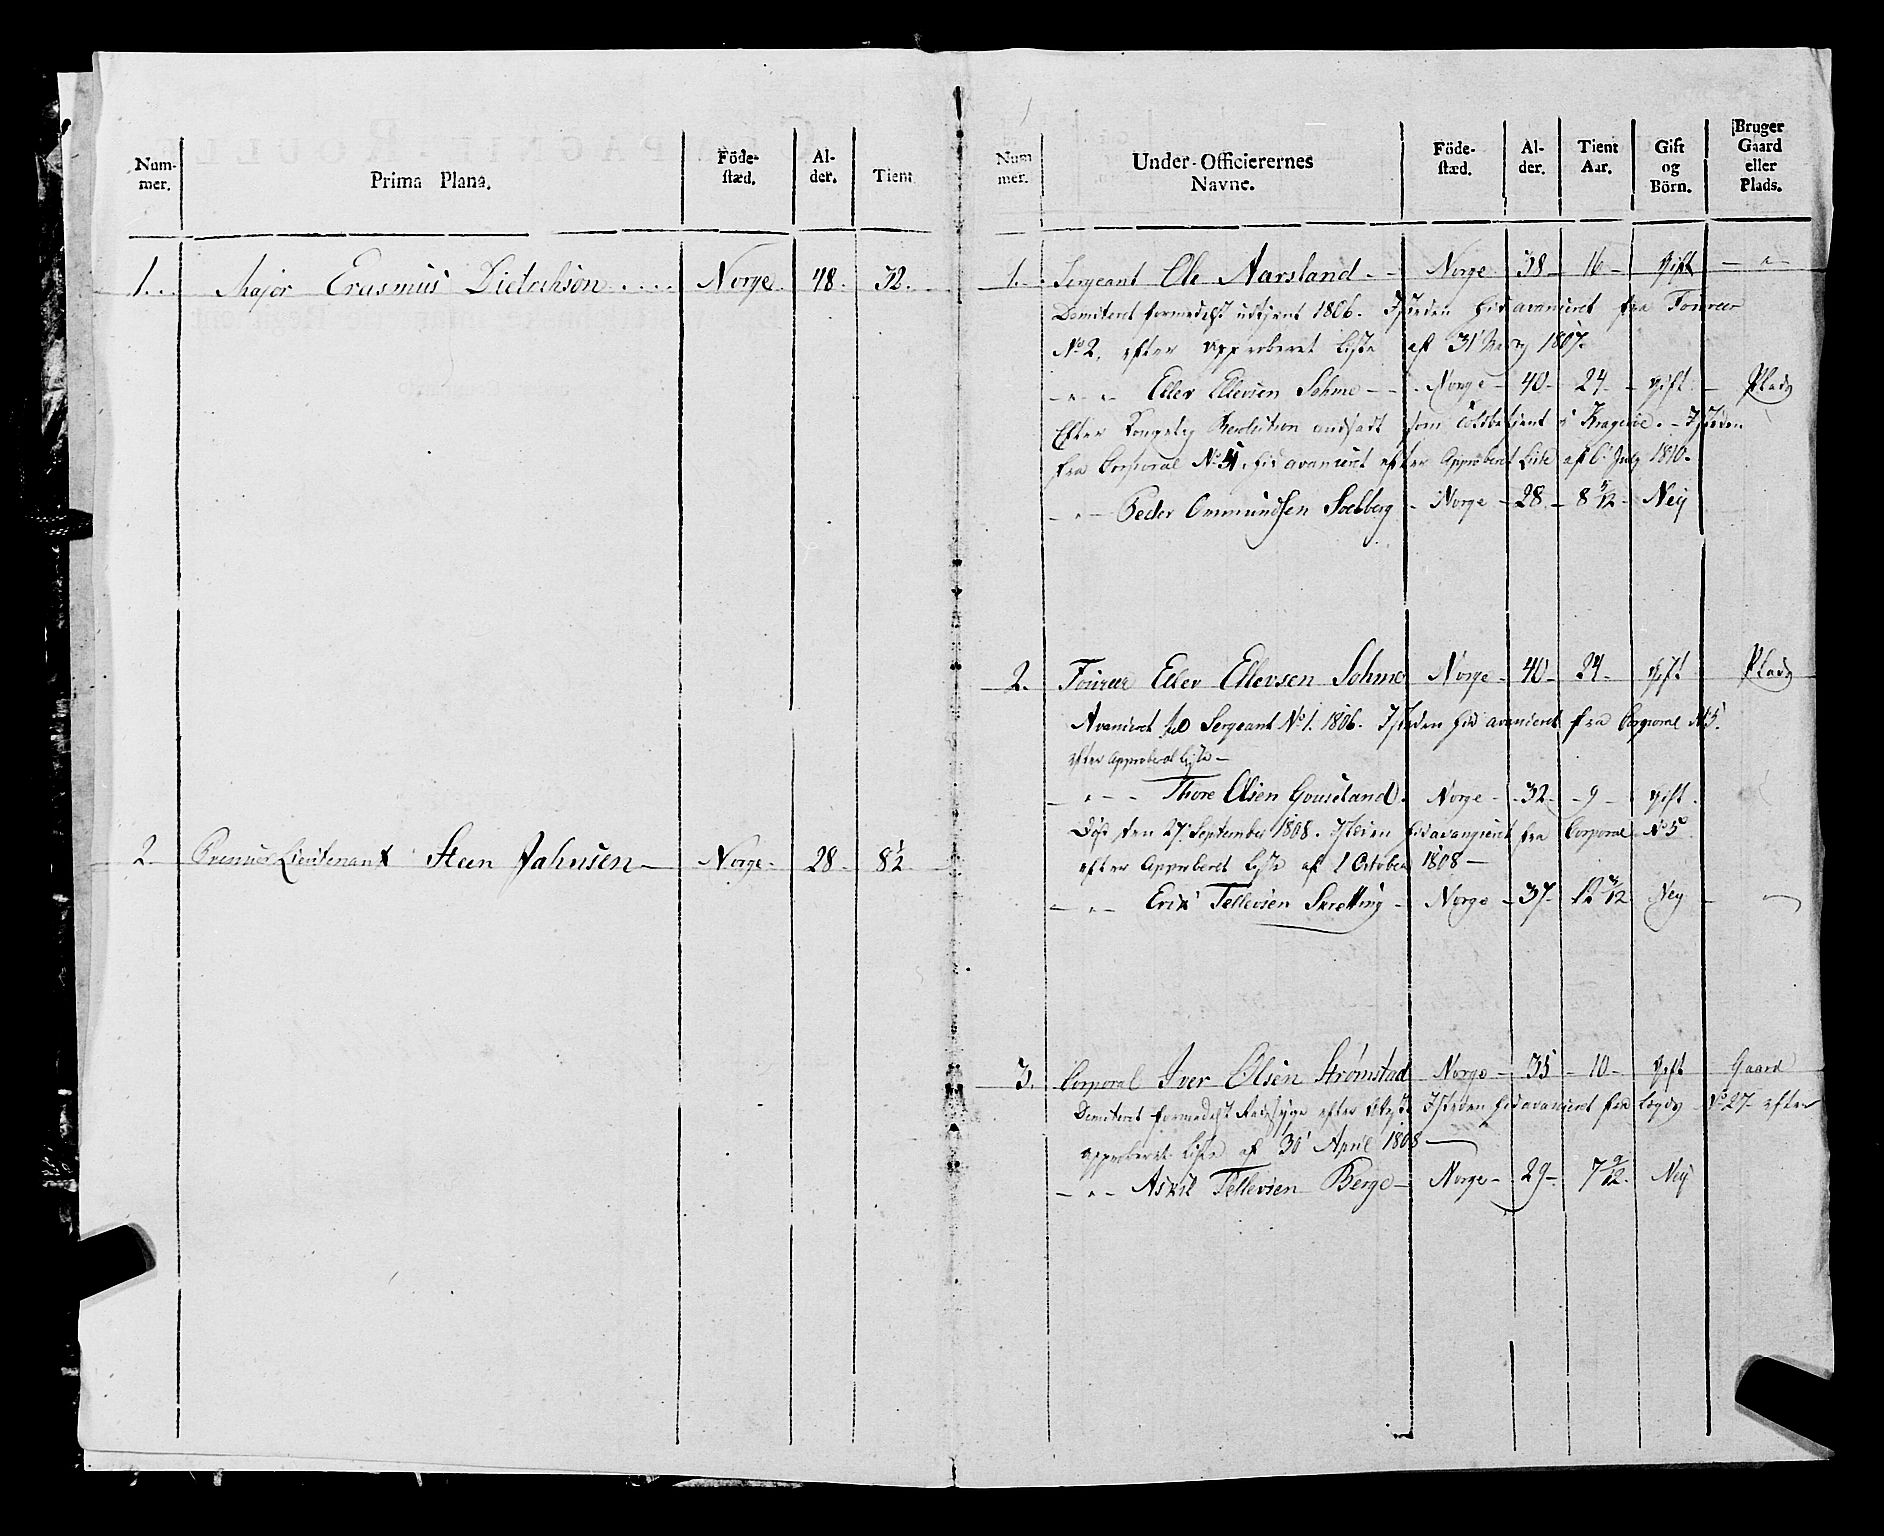 Num-
mer.
Prima Plana.
Föde-
stæd.
Al-
der.
Tient
1. Major Erasmus Dietrichson Norge. 48. 32.
2. Premier Lieutenant Steen Jahnsen Norge 28 8 1/2
Num
mer.
Under-Officierernes
Navne.
Föde-
stæd.
Al-
der.
Tient
Aar.
Gift
og
Börn.
Bruger
Gaard
eller
Plads.
1. Sergeant Ole Aarsland Norge 38 16 Gift "
Demiteret formedelst udtjent 1806. Isteden hid avanceret fra Foureer
No 2. efter Approberet Liste af 31 1807.
" " Ellev Ellevsen Sohme Norge 40 24 gift Plads
Efter Kongelig Resolution andsadt som Toldbetjent i Kragerøe. Isteden
fra Corporal No 4. hid avanceret efter Approberet Liste af 6 July 1810.
" Peder Ommundsen Soelberg Norge 28 8 5/12 Neij
2. Foureer Ellev Ellevsen Sohme Norge 40 24 gift Plads
Avanceret til Sergeant No 1. 1806. Isteden hid avanceret fra Corporal No 5.
efter Approberet Liste
" Thore Olsen Gouseland Norge 32 9 gift
Død den 27 September 1808. Isteden hid avanceret fra Corporal No 5
efter Approberet Liste af 1 October 1808
" Erik Tellevsen Skretting Norge 37 12 3/12 Neij "
3. Corporal Iver Olsen Strømstad Norge 35 10 Gift Gaard
Demiteret formedelst efter Isteden hid avanceret fra Lægds No 27 efter
approberet Liste af 30 April 1808
" Askil Tellevsen Berge Norge 29 7 9/12 Neij